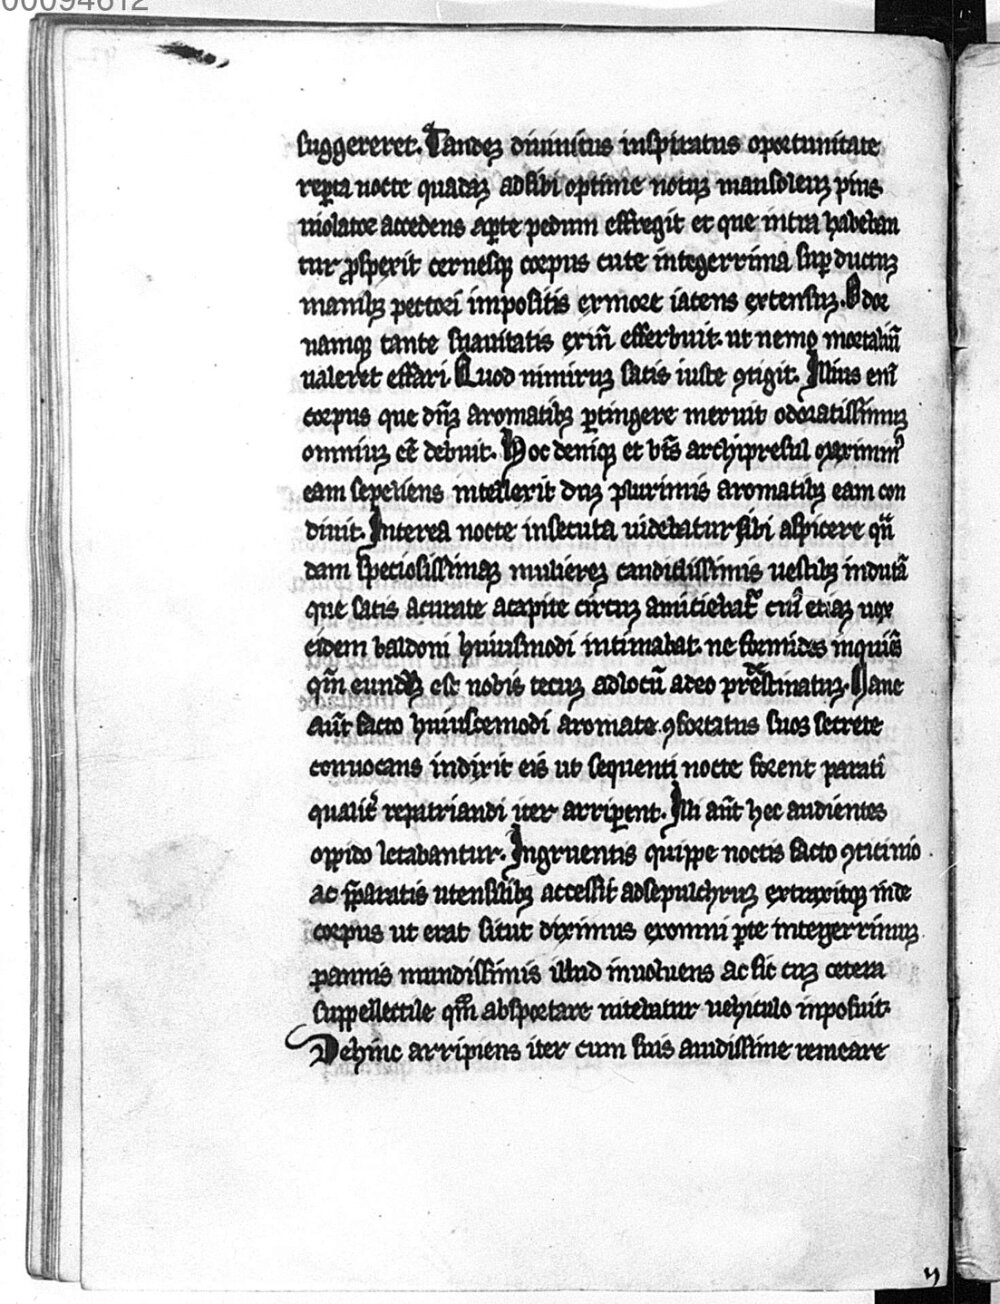 00094612
suggereret. Tandeʒ diuinitus inspiratus oportunitate
reꝑta nocte quadaʒ ad sibi optime notuʒ mausoleuʒ pius
uiolator accedens aꝑte pedum effregit et que intra habeban
tur ꝓspexit cernesqꝫ corpus cute integerrima suꝑductuʒ
manibꝫ pectori impositis ex more iacens extensuʒ. Odor
namqꝫ tante suauitatis exin̄ efferbuit. ut nemo mortaliū
ualeret effari. Quod nimiruʒ satis iuste ꝯtigit. Illius enī
corpus que dn̄ʒ aromatibꝫ ꝑtingere meruit odoratissimuʒ
omniuʒ eē debuit. Hoc deniqꝫ et bt̄s archipresul
eam sepeliens intellexit duʒ plurimis aromatibꝫ eam con
diuit. Interea nocte insecuta uidebatur sibi aspicere qū
dam speciosissimaʒ muliereʒ candidissimis uestibꝫ indutā
que satis acurate a capite circuʒ amiciebat᷑ cuiꝰ etiaʒ uox
eidem baldoni huiusmodi intimabat. ne formides inquiēs
qm̄ eunduʒ est nobis tecuʒ ad locū a deo predestinatuʒ. Hanc
aūt facto huiuscemodi aromate ꝯfortatus suos secrete
conuocans indixit eis ut sequenti nocte forent parati
qualit᷑ repatriandi iter arriꝑent. Illi aūt hec audientes
oppido letabantur. Ingruentis quippe noctis facto ꝯticinio
ac p̄paratis utensilibꝫ accessit ad sepulchruʒ extraxitqꝫ inde
corpus ut erat situt diximus ex omni ꝑte integerrimuʒ
pannis mundissimis illud inuoluens ac sic cuʒ cetera
suppellectile qm̄ absportare nitebatur uehiculo inposuit.
Dehinc arripiens iter cum suis auidissime remeare